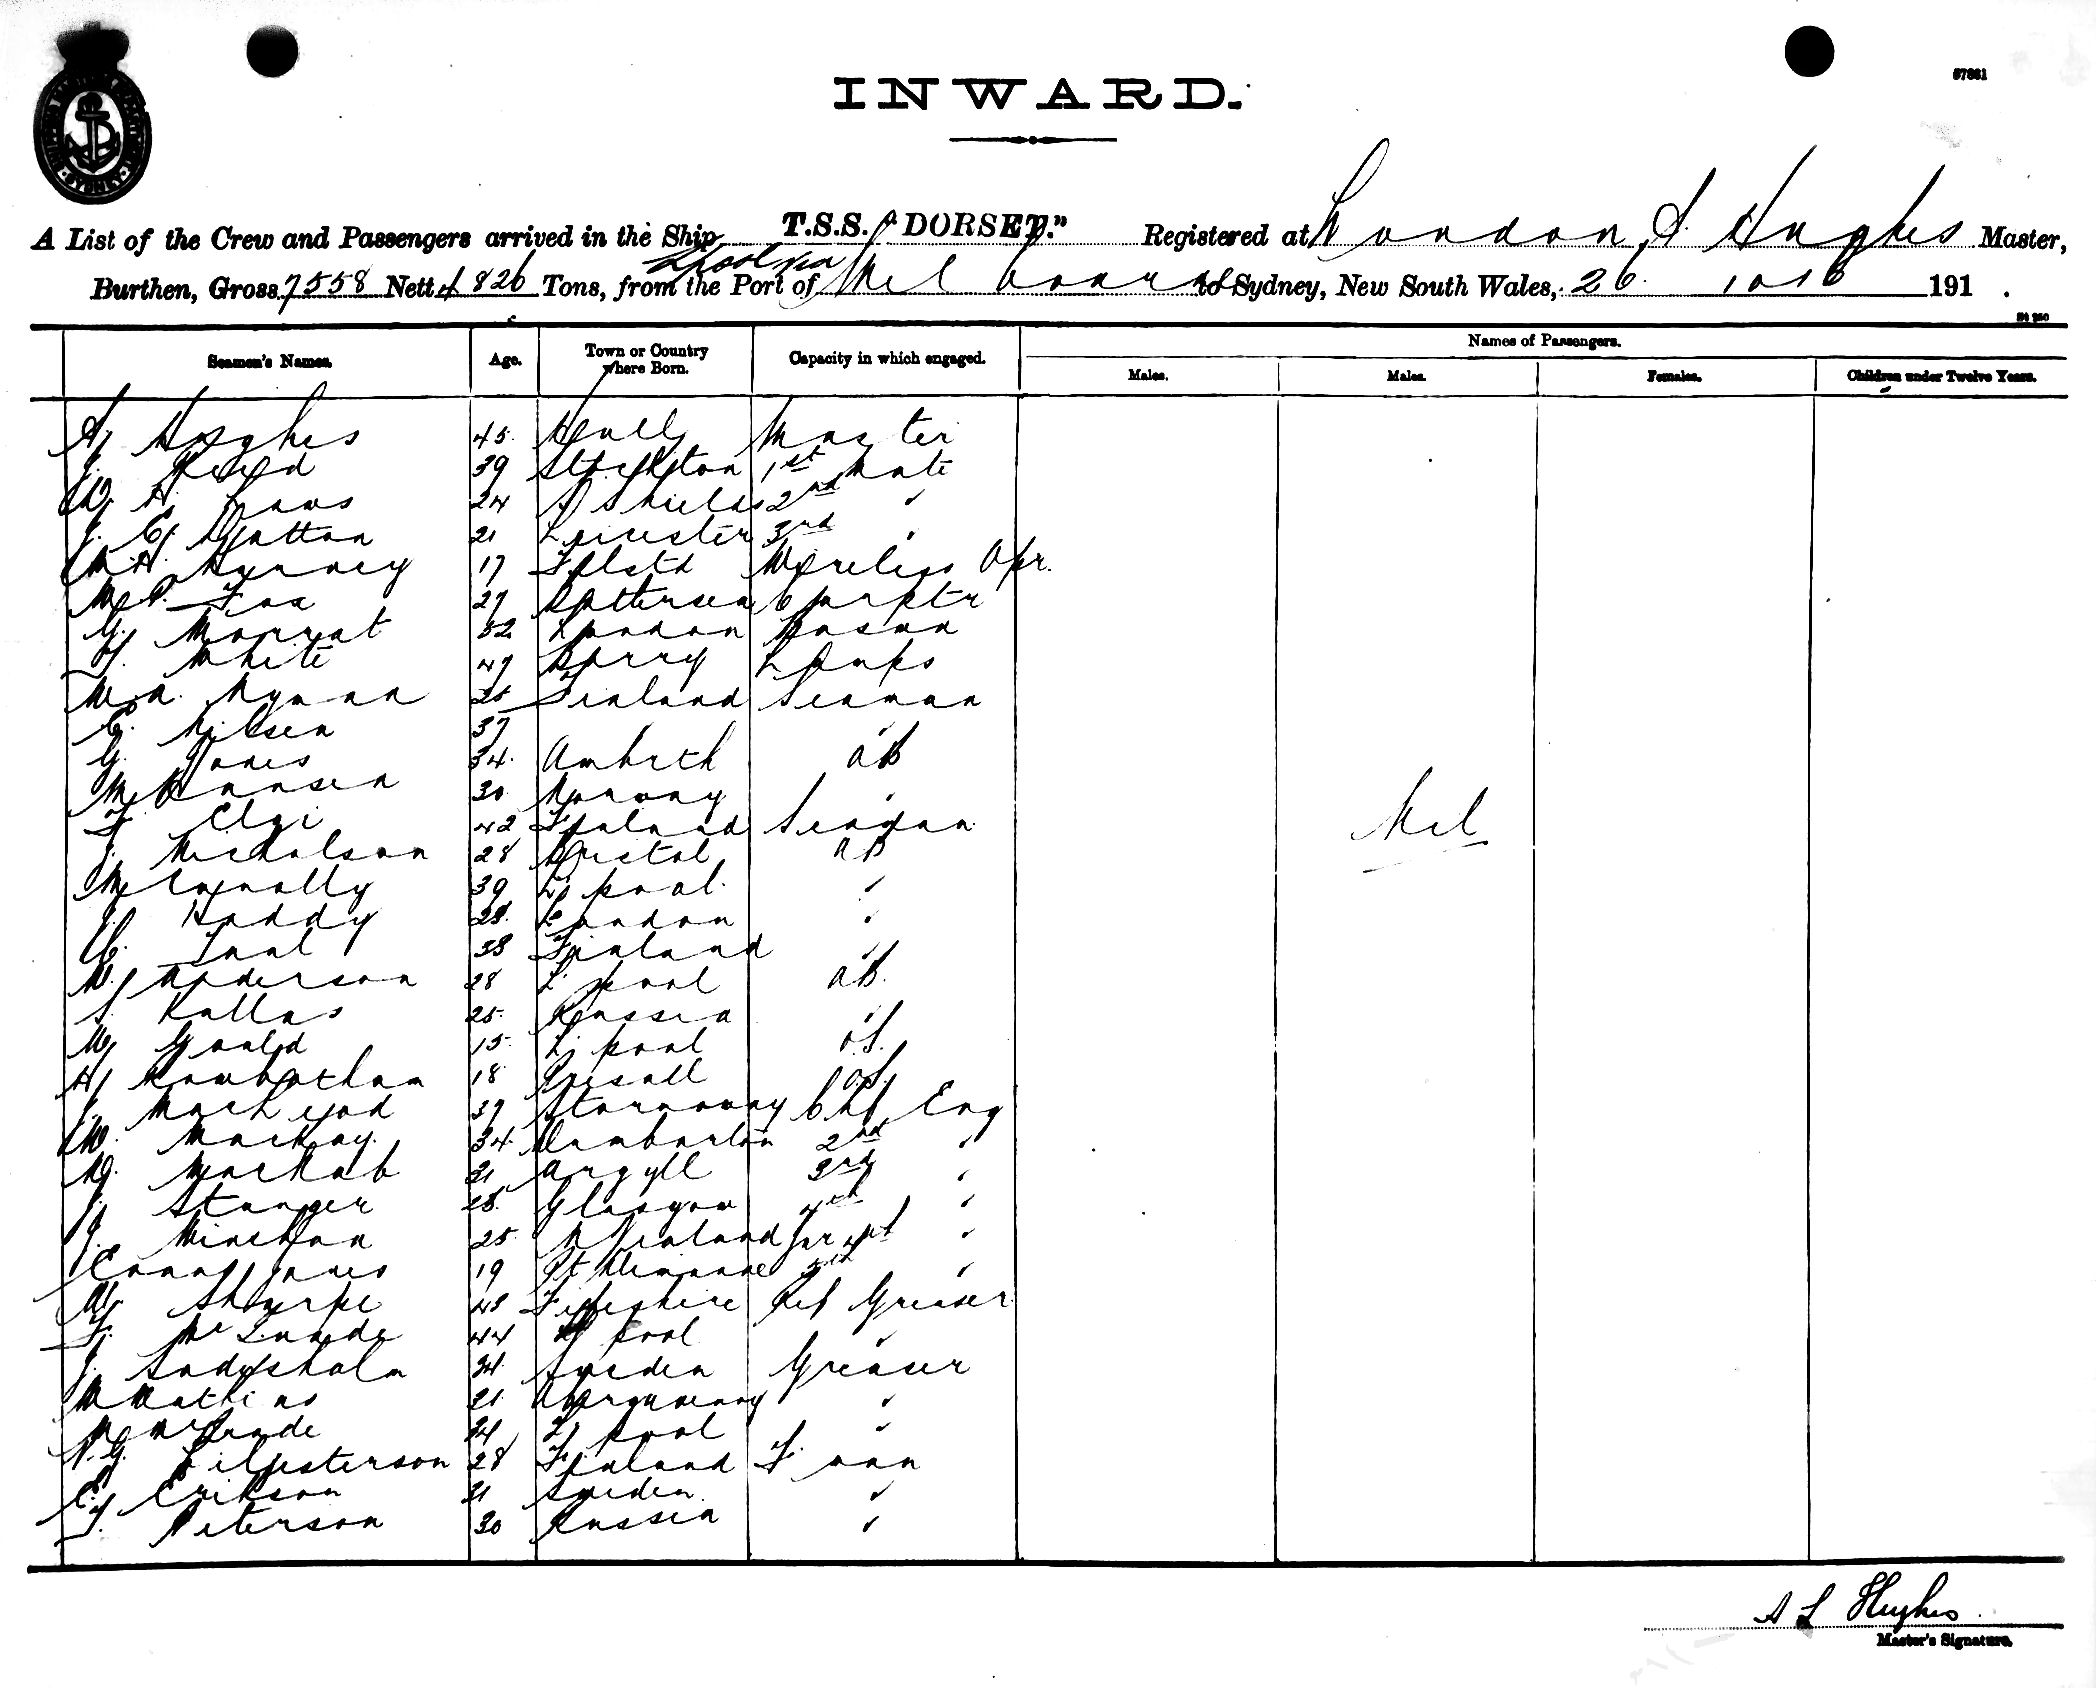 57861
INWARD.
A List of the Crew and Passengers arrived in the Ship T.S.S. "DORSET." Registered at London, A Hughes Master,
L'pool via
Burthen, Gross 7558 Nett 4826 Tons, from the Port of Melbourne to Sydney, New South Wales, 26 10 16 191 .
Seamen's Names. Age. Town or Country where Born. Capacity in which engaged. Names of Passengers.
Males. Males. Females. Children under Twelve Years.
A Hughes 45 Hull Master
J. 39 Stockton 1st Mate
W. H. Laws 24 S Shields 2nd "
J. C. Hutton 21 Leicester 3rd "
17 Wireless Opr.
W P. Fox 27 Battersea Carptr
G. Marrat 52 London Bosun
F. White 47 Barry Lamps
W. A. Nyman 25 Finland Seaman
C. Nilsen 37 "
G. Jones 34 Amlwch AB
M Hansen 30 Norway "
F Elgi 42 Finland Seaman
J. Nicholson 28 Bristol AB
M Connolly 39 L'pool "
J. Haddy 28 London "
38 Finland "
W. Anderson 28 L'pool AB.
S. Kallas 25 Russia "
W Gould 15 L'pool OS.
H Rowbotham 18 OS
J. MacLeod 39 Stornoway Chf Eng
W. Mackay. 34 Dumbarton 2nd "
D. MacNab 31 Argyll 3rd "
J. Stanger 28 Glasgow 4th "
J. 25 N Zealand Jnr 4th "
Jones 19 5th "
A. Sharpe 48 Fifeshire Ref Greaser
F. 44 L'pool "
J. Sodesholm 34 Sweden Greaser
W Mathias 21 Abergavenny "
34 L'pool "
N. G. Liljesterson 28 Finland F. man
E. Erikson 31 Sweden "
F. Peterson 30 Russia "
Mel
A L Hughes
Master's Signature.